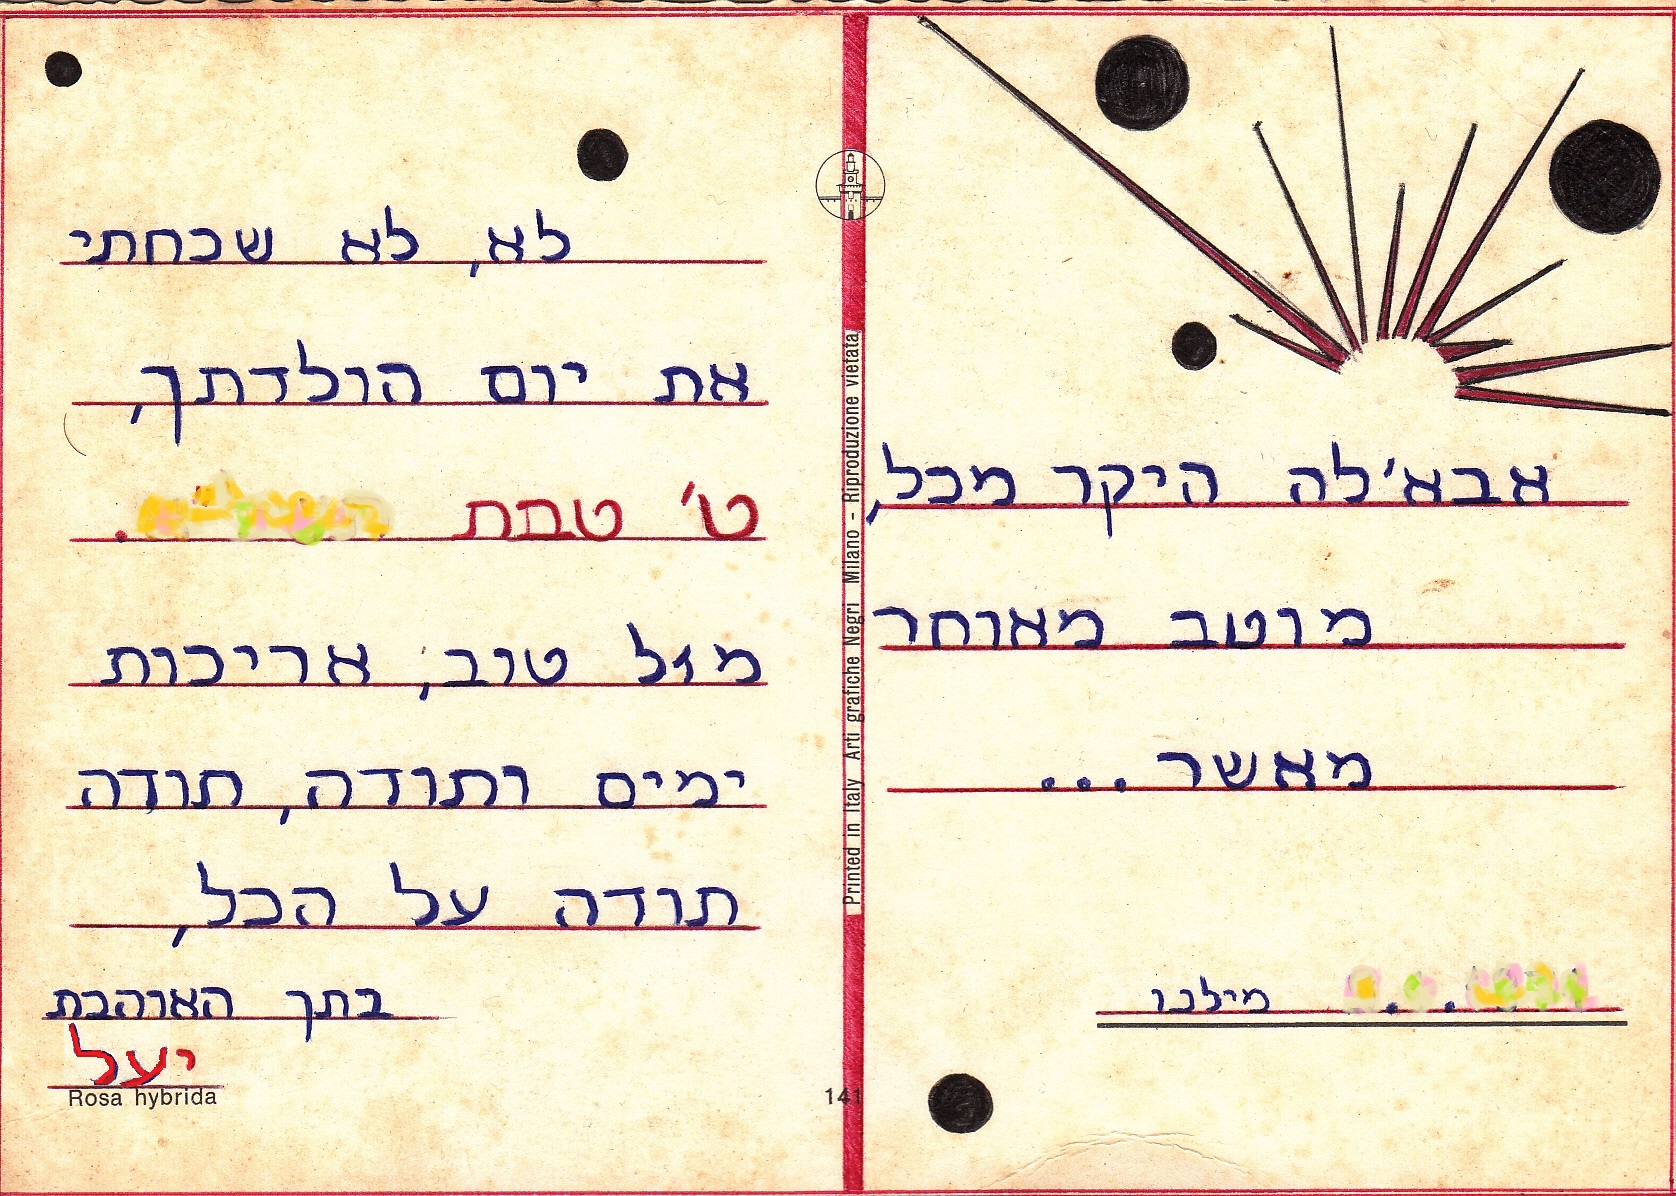 אבא'לה היקר מכל,
מוטב מאוחר
מאשר...
מילנו
לא, לא שכחתי
את יום הולדתך,
ט' טבת .
מזל טוב, אריכות
ימים ותודה, תודה
תודה על הכל,
בתך האוהבת
יעל
Rosa hybrida
141
Printed in Italy Arti grafiche Negri Milano - Riproduzione vietata